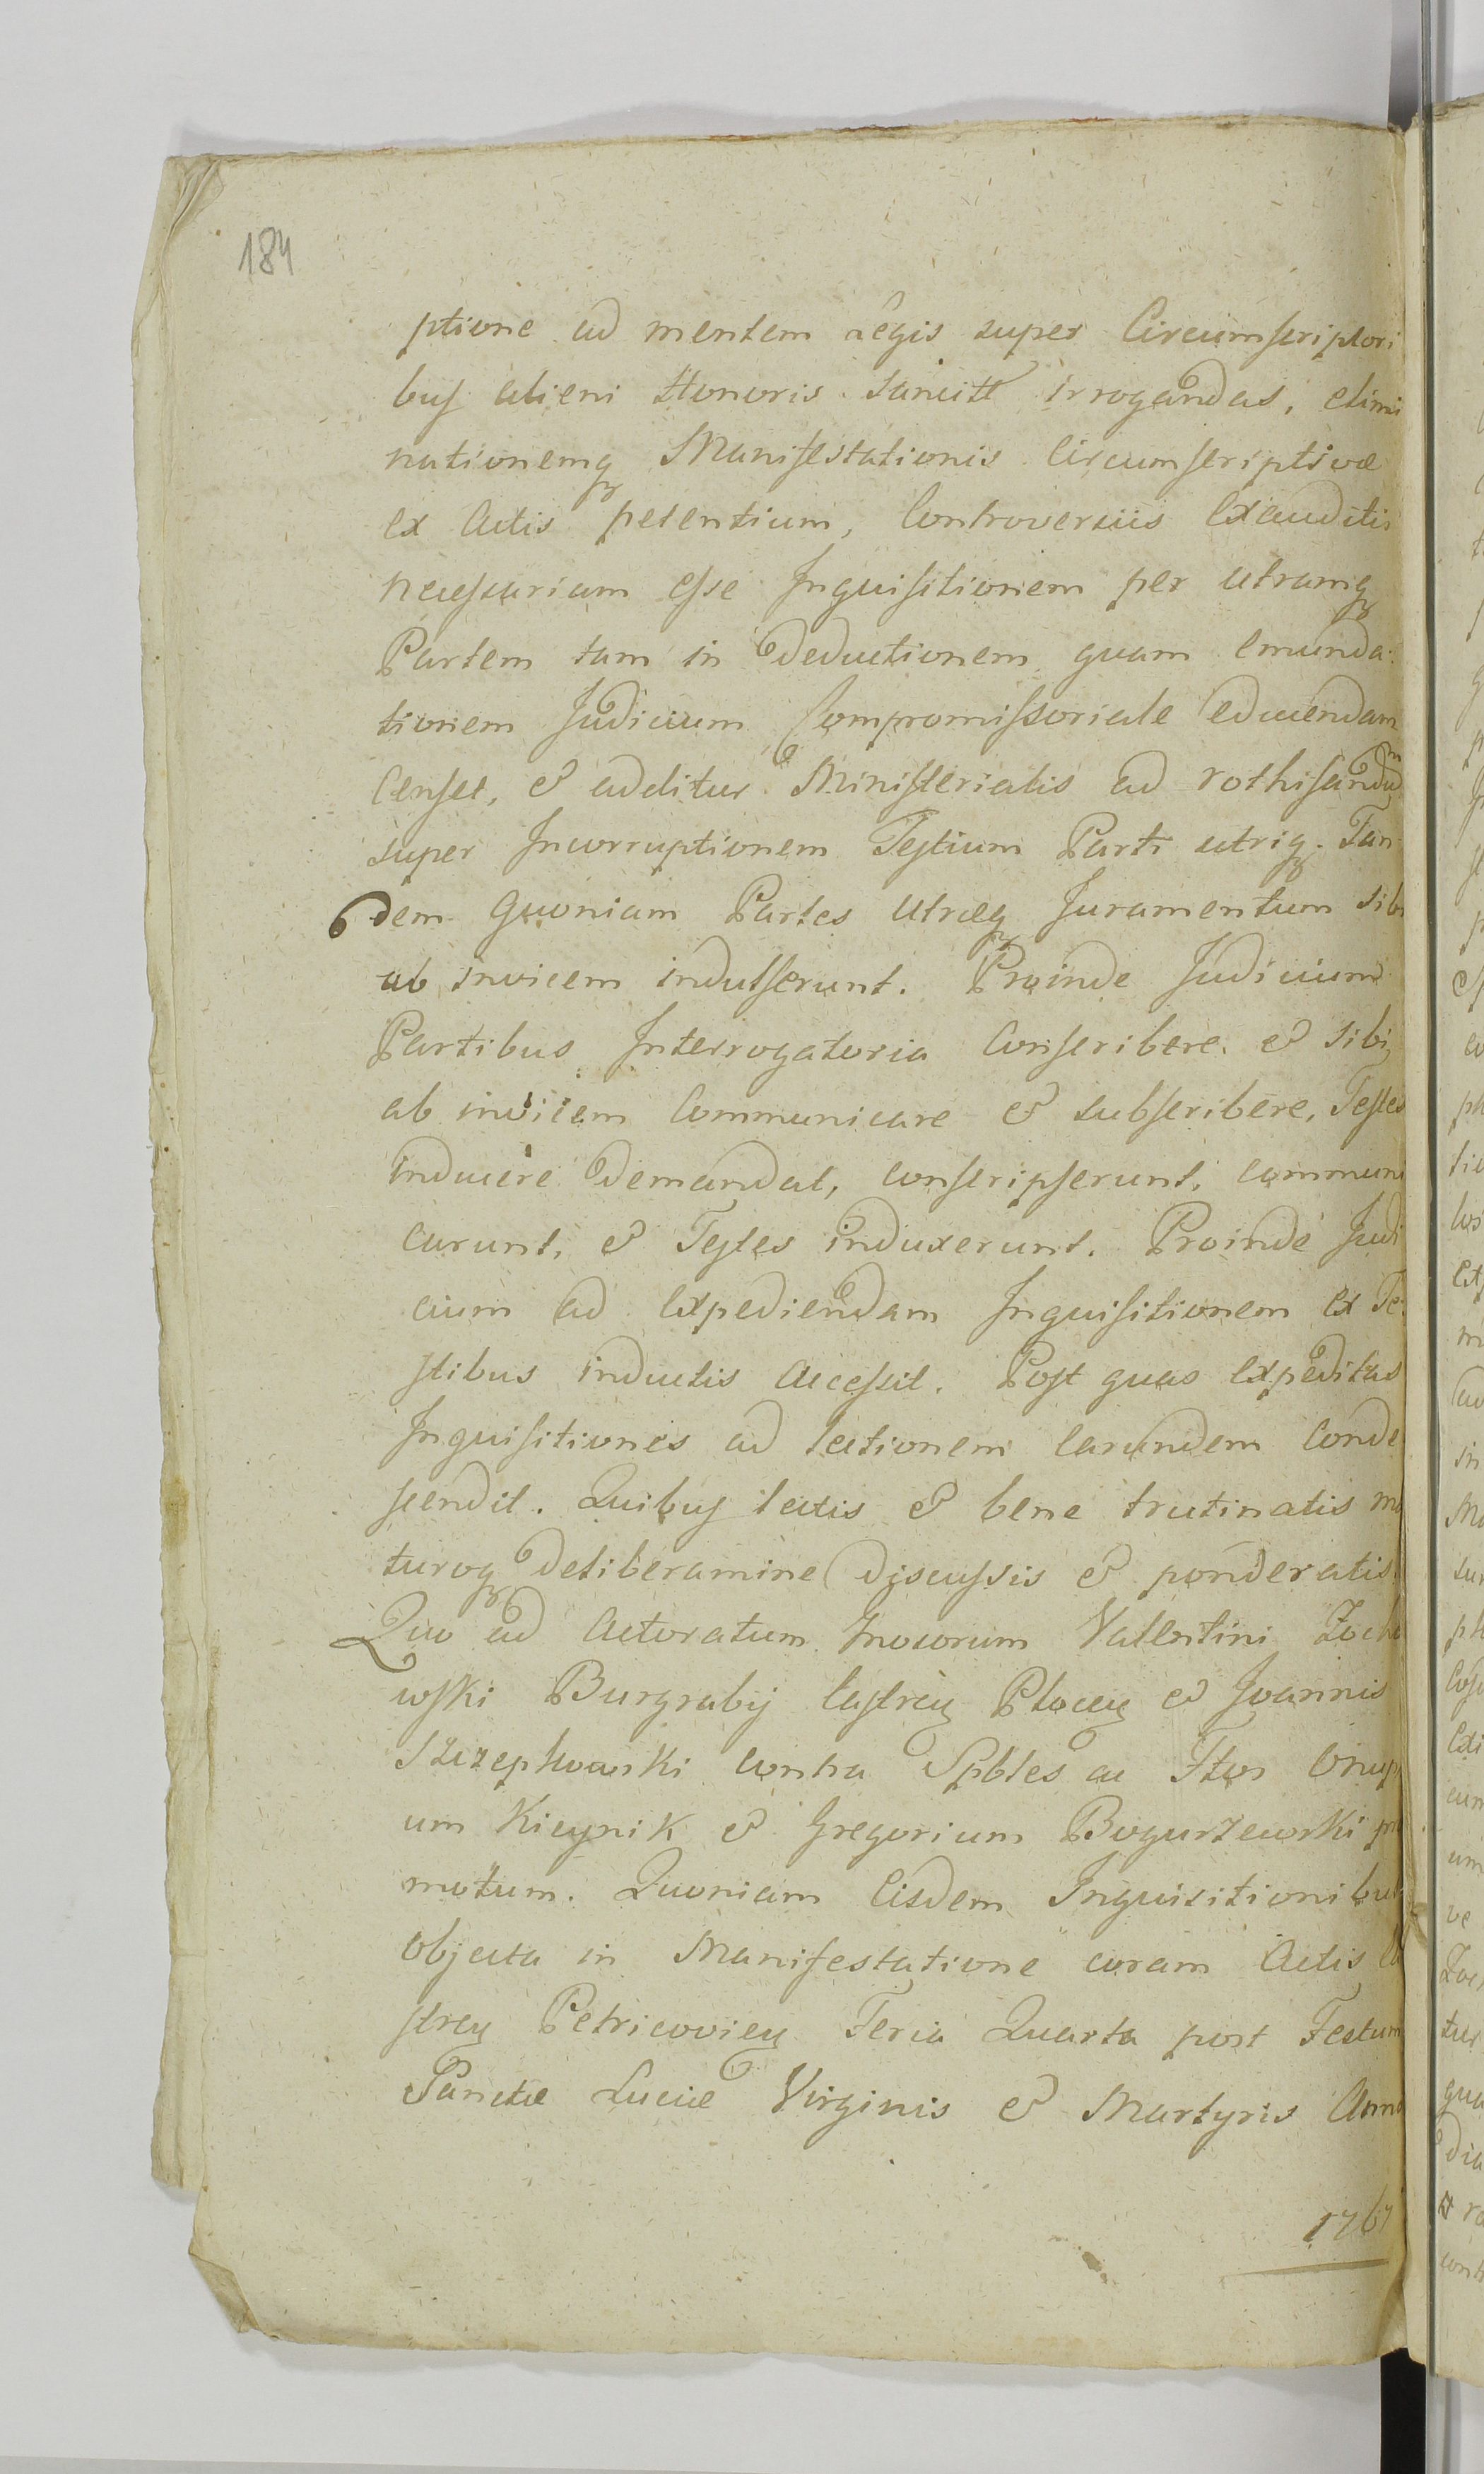 184
ptione ad mentem Legis super Circumscriptori
bus alieni Honoris sancitt irrogandas, elimi
nationemq Manifestationis Circumscriptivæ
ex Actis petentium, Controversiis Exauditis
necessariam esse Inquisitionem per utramq
Partem tam in deductionem quam emunda
tionem Judicium Compromissoriale educendam
Censet, & additur Ministerialis ad rothisandum
super Incorruptionem Testium Parti utriq. Tan
dem quoniam Partes utræq Juramentum sibi
ab invicem indulserunt. Proinde Judicium
Partibus Interrogatoria Conscribere & sibi
ab invicem Communicare & subscribere, Testes
inducere demandat, conscripserunt, communi
carunt, & Testes induxerunt. Proinde Judi
cium ad Expediendam Inquisitionem ex Te
stibus inductis accessit. Post quas Expeditas
Inquisitiones ad lectionem earundem Conde
scendit. Quibus lectis & bene trutinatis ma
turoq deliberamine discussis & ponderatis
Quo ad Actoratum Valentini Zocho
wski Burgrabij Castren Plocen & Joannis
Szczepkowski contra Spbles ac
um Kicynik & Gregorium Bogurzewski pro
motum. Quoniam Eisdem Inquisitionibus
objecta in Manifestatione coram Actis Ca
stren Petricovien Feria Quarta post Festum
Sanctæ Luciæ Virginis & Martyris Anno
1767